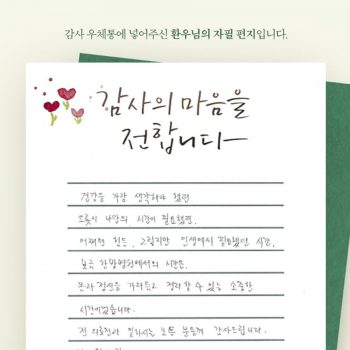 감사 우체통에 넣어주신 환우님의 자필 편지입니다.
감사의 마음을
전합니다
건강을 가장 생각해야 했던
오롯이 나만의 시간이 필요했던.
어쩌면 힘든, 그렇지만 인생에서 필요했던 시간.
보금 한방병원에서의 시간은.
몸과 정신을 가다듬고 정리할 수 있는 소중한
시간이었습니다.
전 의료진과 일하시는 모든 분들께 감사드립니다.